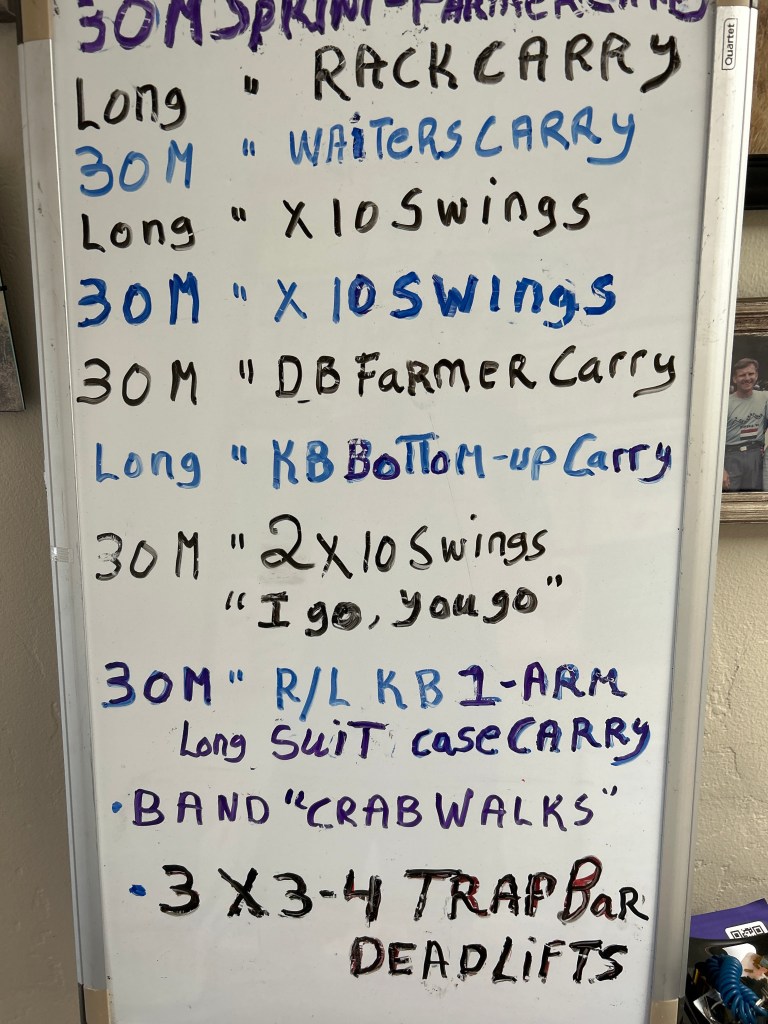 30M SPRINT-FARMER CARRY
Long " RACK CARRY
30M " WAiTeRS CARRY
Long " X 10 Swings
30M " X 10 SWIngS
30M " DB FaRMER Carry
Long " KB BoTToM-up Carry
30M " 2 X 10 Swings
"I go, you go"
30M " R/L KB 1-ARM
Long SuiT case CARRY
• BAND "CRAB WALKS"
• 3 X 3-4 TRAP BaR
DEADLiFTS
Quartet